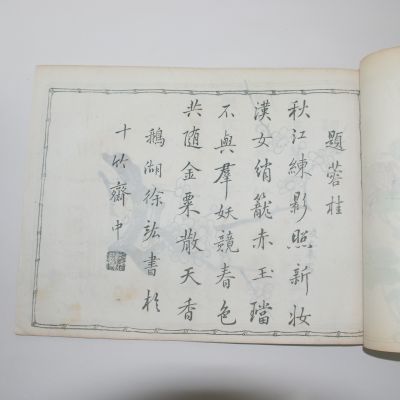 題蓉桂
秋江練影照新妝
漢女俏籠赤玉璫
不與羣妖競春色
共随金粟散天香
鵝湖徐䛒書於
十竹齋中